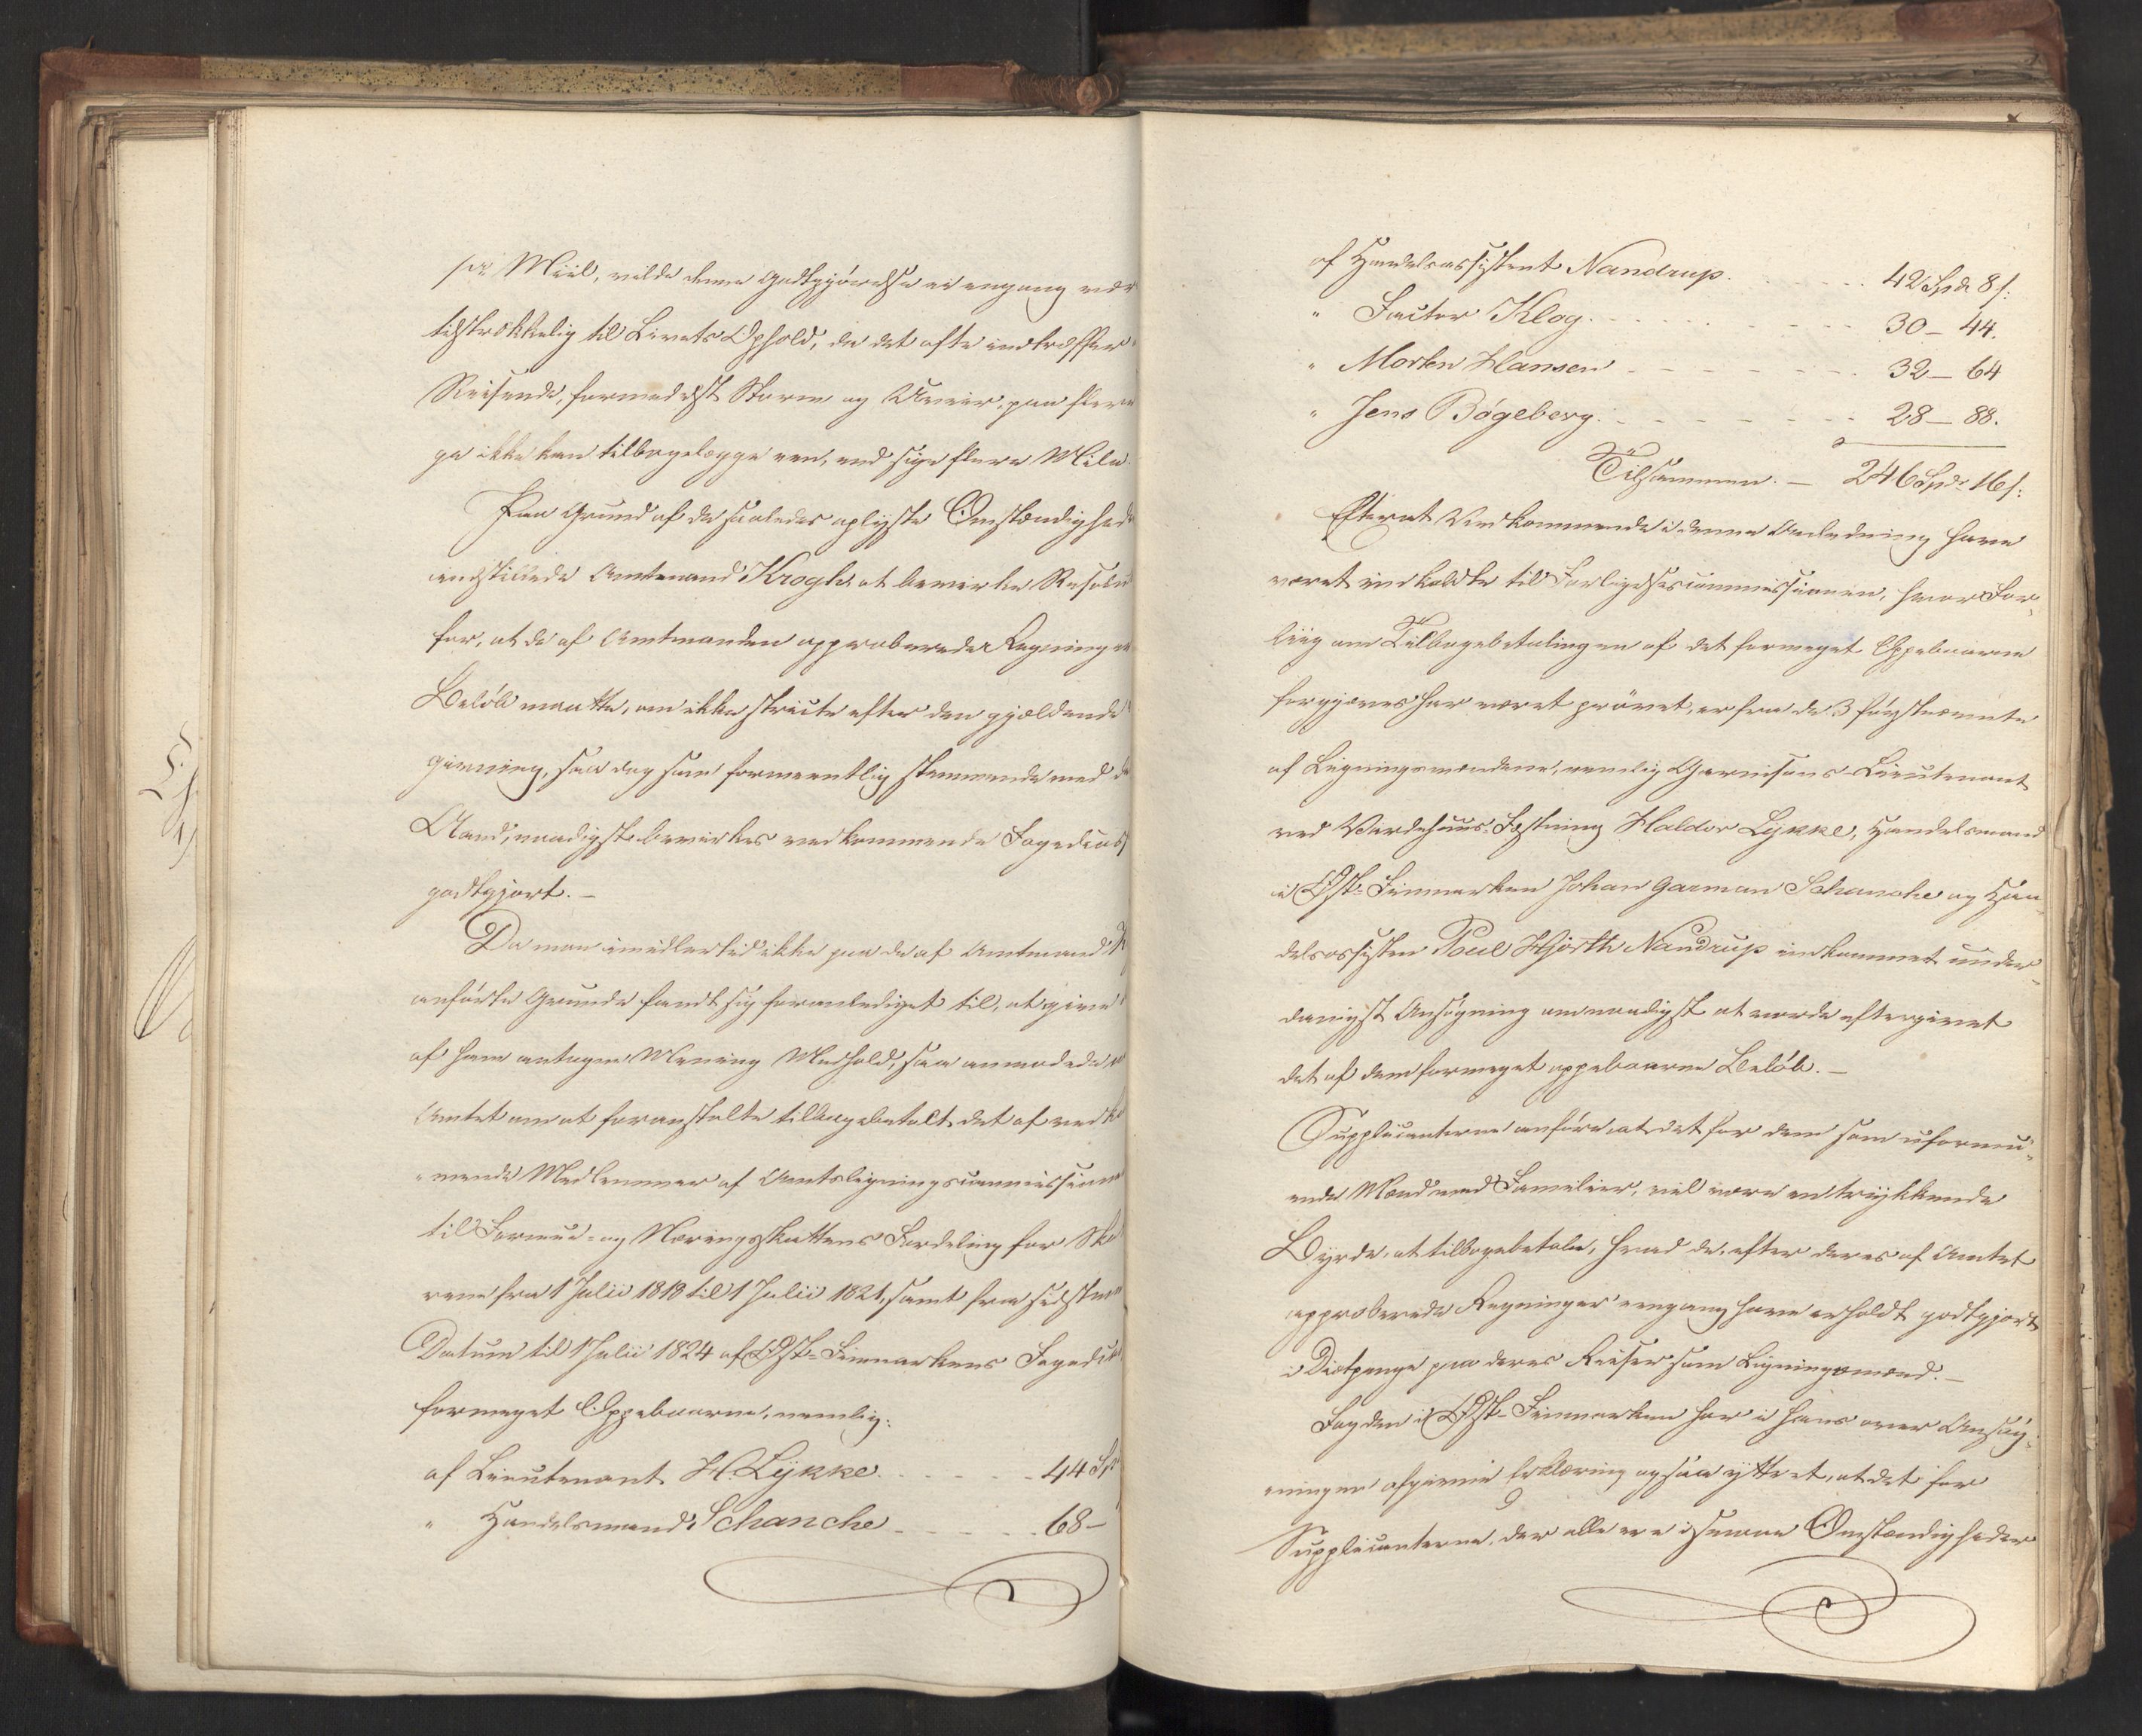 pr Miil, vilde denne Godtgjørelse ei engang vær
tilstrækkelig til Livets Ophold, da det ofte indtræffer
Reisende, formedelst Storm og Uveir, paa flere
ge ikke kan tilbagelægge een, end sige flere Mile.
Paa Grund af de saaledes oplyste Omstændighed
indstillede Amtmand Krogh at bevirke Resolu
for, at de af Amtmanden approberede Regninger
Beløb maatte, om ikke stricte efter den gjældende
givning, saa dog som formeentlig stemmende med de
Aand, naadigst bevirkes vedkommende Fogedcasse
godtgjort.-
Da man imidlertid ikke paa de af Amtmand K
anførte Grunde fandt sig foranlediget til, at give
af ham antagne Mening Medhold, saa anmodede
Amtet om at foranstalte tilbagebetalt det af vedk
mende Medlemmer af Amtsligningscommissione
til Formue- og Næringsskattens Fordeling for Ska
rene fra 1 Julii 1818 til 1 Julii 1821, samt fra sidstne
Datum til 1 Julii 1824 af Øst-Finmarkens Foged
formeget Oppebaarne, nemlig:
af Lieutenant H. Lykke . . . . 44 Sp
" Handelsmand Schanche . . . . 68 -
af Handelsassistent Nandrup . . . . 42 Spd 8 s:
" Factor Klog . . . . 30 - 44.
" Morten Hansen . . . . 32 - 64
" Jens Bøgeberg . . . . 28 - 88.
Tilsammen. - 246 Spdr 16 s:
Efterat Vedkommende i denne Anledning have
været indkaldte til Forligelsescommissionen, hvor For-
liig om Tilbagebetalingen af det formeget Oppebaarne
forgjæves har været prøvet, er fra de 3 førstnævnte
af Ligningsmændene, nemlig Garnisons-Lieutenant
ved Vardehuus Fæstning Haldor Lykke, Handelsmand
i Øst-Finmarken Johan Garman Schanche og Han-
delsassisten Poul Hjorth Nandrup indkommet under-
danigst Ansøgning om naadigst at vorde eftergivet
det af dem formeget oppebaarne Beløb. -
Supplicanterne anføre at det for dem som uformu-
ende Mænd med Familier, vil være en trykkende
Byrde, at tilbagebetale, hvad de, efter deres af Amtet
approberede Regninger eengang have erholdt godtgjort
i Diætpenge paa deres Reiser som Ligningsmænd. -
Fogden i Øst-Finmarken har i hans over Ansøg-
ningen afgivne Erklæring ogsaa yttret, at det for
Supplicanterne, der alle ere i svare Omstændigheder